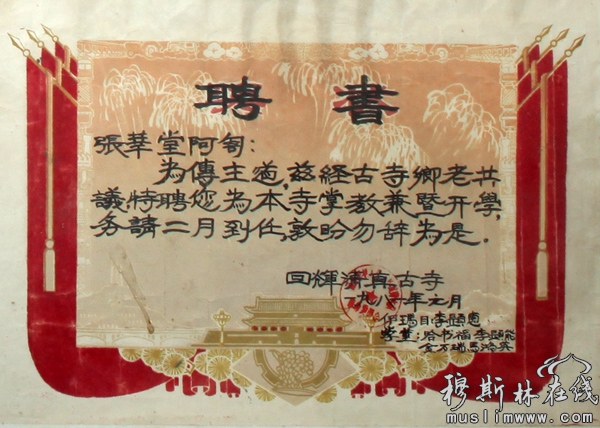 聘書
張華堂阿訇:
為傳主道,兹経古寺鄉老共
議,特聘您為本寺掌教兼暨开學,
务請二月到任,敦盼勿辞為是.
回輝清真古寺
一九八 年元月
伊瑪目李顯
學董:哈书福 李顯能
金万瑞馬
穆斯林在线
muslimwww.com